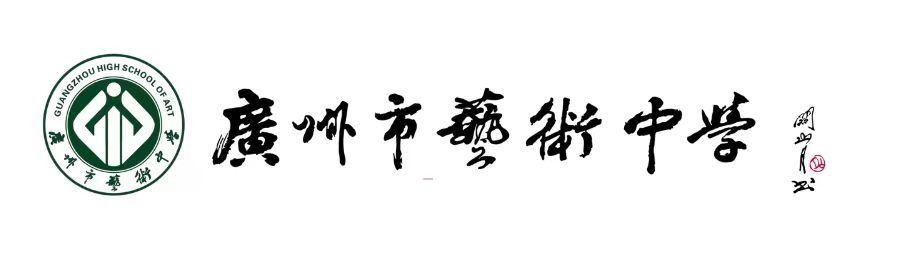 GUANGZHOU HIGH SCHOOL OF ART
廣州市藝術中學
廣州市藝術中學
關山月書